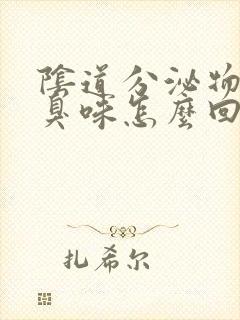 陰道分泌物
臭味怎麼回
扎希尔